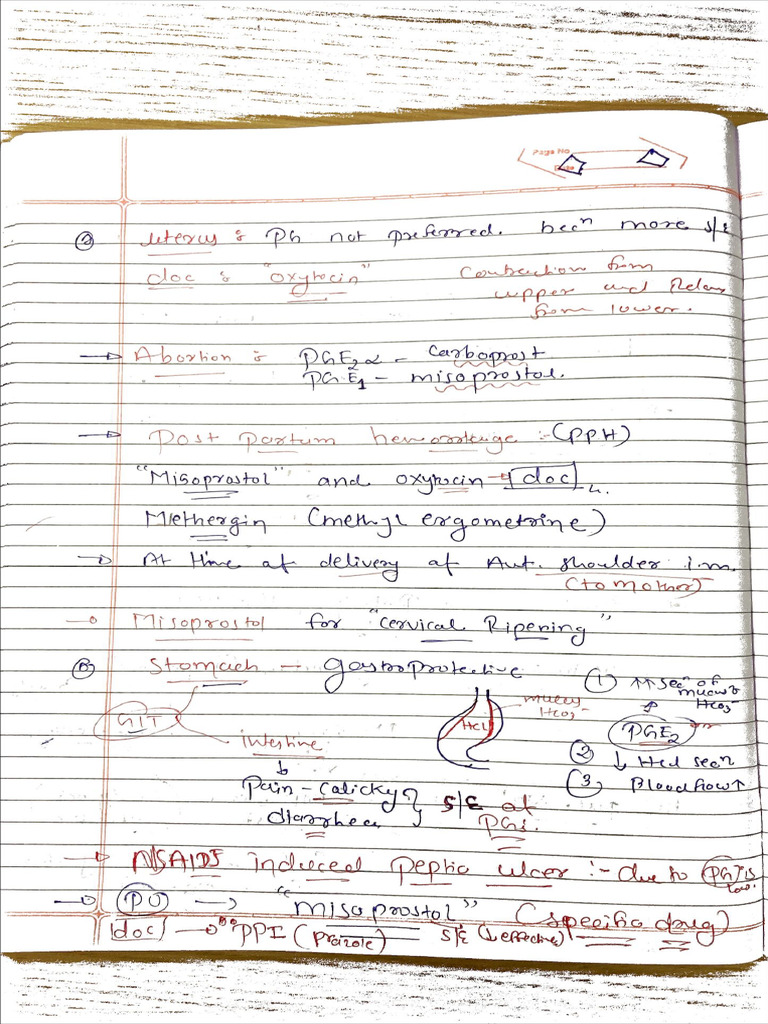 Page No
② Uterus : PG not preferred. becn more s/E
doc : "oxytocin"
Contraction from
upper and Relax
from lower.
→ Abortion : PGE2α - Carboprost
PGE1 - misoprostol.
→ Post Partum hemorrhage :- (PPH)
"Misoprostol" and oxytocin → doc
Methergin (methyl ergometrine)
→ At time of delivery of Ant. shoulder i.m.
(to mother)
→ Misoprostol for "cervical Ripening"
Stomach - gastroprotective
① ↑↑ Secn of
mucus &
HCO3-
GIT
HCl
mucus
HCO3-
PGE2
Intestine
② ↓ HCl secn
↓
③ Blood flow ↑
Pain - Colicky } S/E of
diarrhea } PGs.
→ NSAIDS induced Peptic ulcer :- due to PG ↑is
low.
→ PO → "misoprostol" (specific drug)
doc → PPI (Prazole) S/E (↓effective)